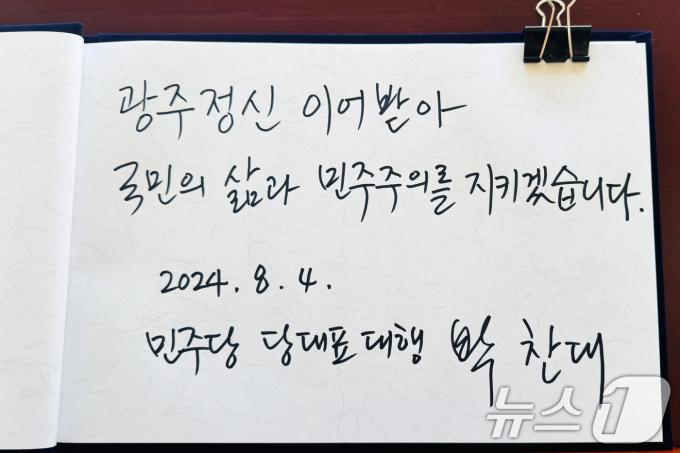 광주정신 이어받아
국민의 삶과 민주주의를 지키겠습니다.
2024. 8. 4.
민주당 당대표 대행 박 찬대
뉴스1